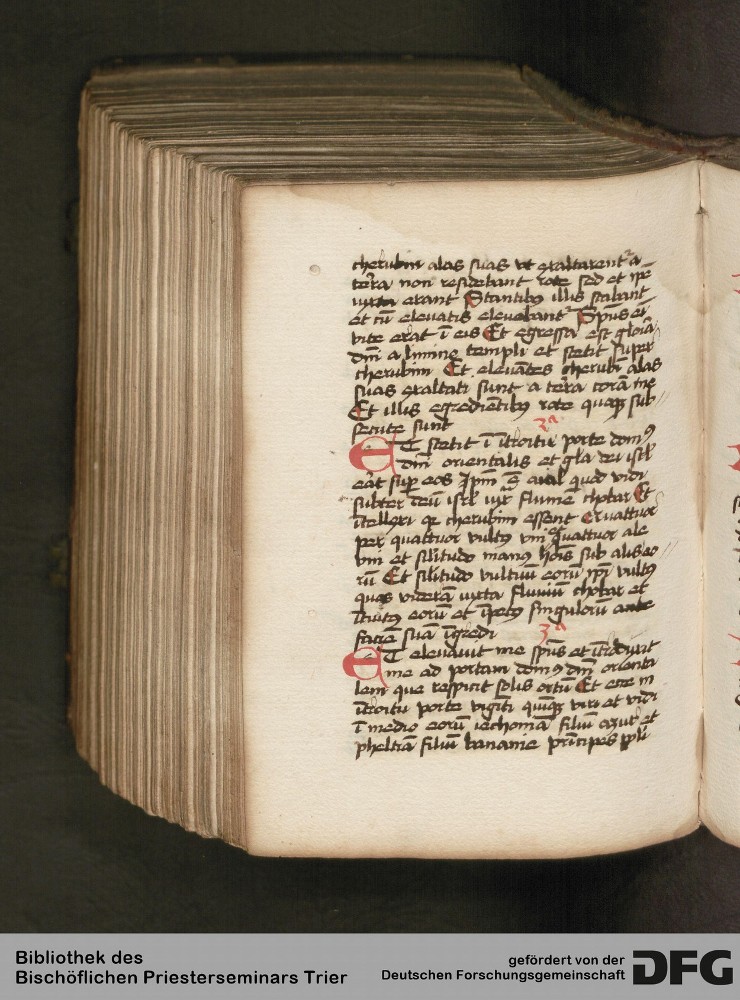 cherubim alas suas vt exaltarent᷑ a
terra non residebant rote sed et ip̄e
iuxta erant Stantibꝰ illis stabant
et cū eleuatis eleuabant᷑ Sp̄us eī
vite erat ī eis Et egressa est gloīa
dn̄i a limine templi et stetit super
cherubim Et eleuātes cherubī alas
suas exaltati sunt a terra corā me
Et illis egrediētibꝰ rote quoqꝫ sub
secute sunt
ET stetit ī ītroitu porte domꝰ
dn̄i orientalis et gl̄a dei isrl̄
erāt suꝑ eos Ip̄m ē aīal quod vidi
subter deū isrl̄ iux̄ fluuiū chobar Et
ītellexi qꝛ cherubim essent Quattuor
per quattuor vultꝰ vni et quattuor ale
vni et sīlitudo manꝰ hoīs sub alis eo
rū Et sīlitudo vultuū eorū ip̄i vultꝰ
quos viderā iuxta fluuiū chobar et
ītuitꝰ eorū et īpetꝰ singulorū ante
faciē suā īgredi
3ᵃ
ET eleuauit me sp̄us et ītroduxit
me ad portam domꝰ dn̄i orienta
lem que respicit solis ortū Et ecce in
ītroitu porte vigīti quīqꝫ viri et vidi
ī medio eorum iechoniā filiū azur et
pheltiā filiū banaie prīcipes ppl̄i
Bibliothek des
Bischöflichen Priesterseminars Trier
gefördert von der
Deutschen Forschungsgemeinschaft
DFG